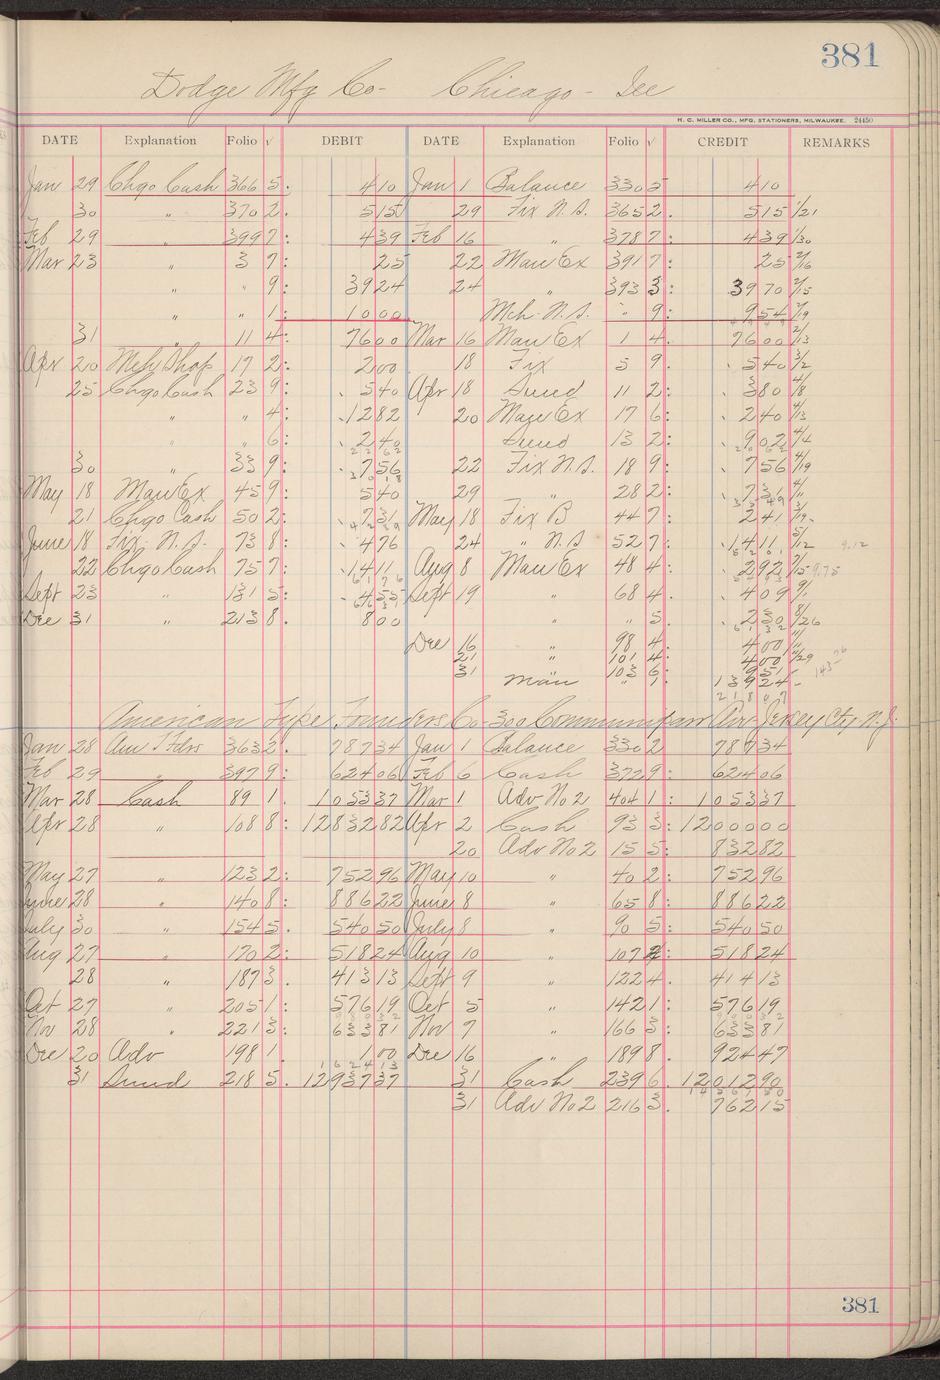 381
Dodge Mfg Co- Chicago - Ill
H. C. MILLER CO., MFG. STATIONERS, MILWAUKEE. 24450
DATE Explanation Folio √ DEBIT DATE Explanation Folio √ CREDIT REMARKS
Jan 29 Chgo Cash 366 5. 4 10 Jan 1 Balance 330 5 4 10
30 " 370 2. 5 15 29 Fix N.S. 365 2. 5 15 1/21
Feb 29 " 399 7: 4 39 Feb 16 " 378 7: 4 39 1/30
Mar 23 " 3 7: 25 22 Man Ex 391 7: 25 2/16
" " 9: 39 24 24 " 393 3: 39 70 2/15
" " 1: 10 00 Mch N.S. " 9: 9 54 2/19
31 " 11 4: 76 00 Mar 16 Man Ex 1 4: 76 00 2/13
Apr 20 Mch Shop 17 2: 2 00 18 Fix 5 9. 5 40 3/2
25 Chgo Cash 23 9: 5 40 Apr 18 Sund 11 2: 3 80 4/8
" " 4: 12 82 20 Man Ex 17 6: 2 40 4/13
" " 6: 2 40 Sund 13 2: 9 02 4/4
30 " 33 9: 7 56 22 Fix N.S. 18 9: 7 56 4/19
May 18 Man Ex 45 9: 5 40 29 " 28 2: 7 31 4/11
21 Chgo Cash 50 2: 7 31 May 18 Fix B 44 7: 2 41 3/19
June 18 Fix N.S. 73 8: 4 76 24 " N.S 52 7: 14 11 5/12 9.12
22 Chgo Cash 75 7: 14 11 Aug 8 Man Ex 48 4: 2 92 /15 9.75
Sept 23 " 131 5: 4 55 Sept 19 " 68 4. 4 09 9/1
Dec 31 " 213 8. 8 00 " " 5. 2 30 8/26
Dec 16 " 98 4. 4 00
21 " 101 4: 4 00 /29
31 " 103 6: 9 51
Man " 1: 139 24
American Type Founders Co- 300 Communipaw Ave- Jersey City N.J.
Jan 28 Am T Fdrs 363 2. 787 34 Jan 1 Balance 330 2 787 34
Feb 29 " 397 9: 624 06 Feb 6 Cash 372 9: 624 06
Mar 28 Cash 89 1. 1053 37 Mar 1 Adv No 2 404 1: 1053 37
Apr 28 " 108 8: 12832 82 Apr 2 Cash 93 3: 12000 00
20 Adv No 2 15 5: 832 82
May 27 " 123 2: 752 96 May 10 " 40 2: 752 96
June 28 " 140 8: 886 22 June 8 " 65 8: 886 22
July 30 " 154 5. 540 50 July 8 " 90 5: 540 50
Aug 27 " 170 2: 518 24 Aug 10 " 107 2: 518 24
28 " 187 3. 413 13 Sept 9 " 122 4. 414 13
Oct 27 " 205 1: 576 19 Oct 5 " 142 1: 576 19
Nov 28 " 221 3: 633 81 Nov 7 " 166 3: 633 81
Dec 20 Adv 198 1. 1 00 Dec 16 " 189 8. 924 47
31 Sund 218 5. 12937 37 31 Cash 239 6. 12012 90
31 Adv No 2 216 3. 762 15
381